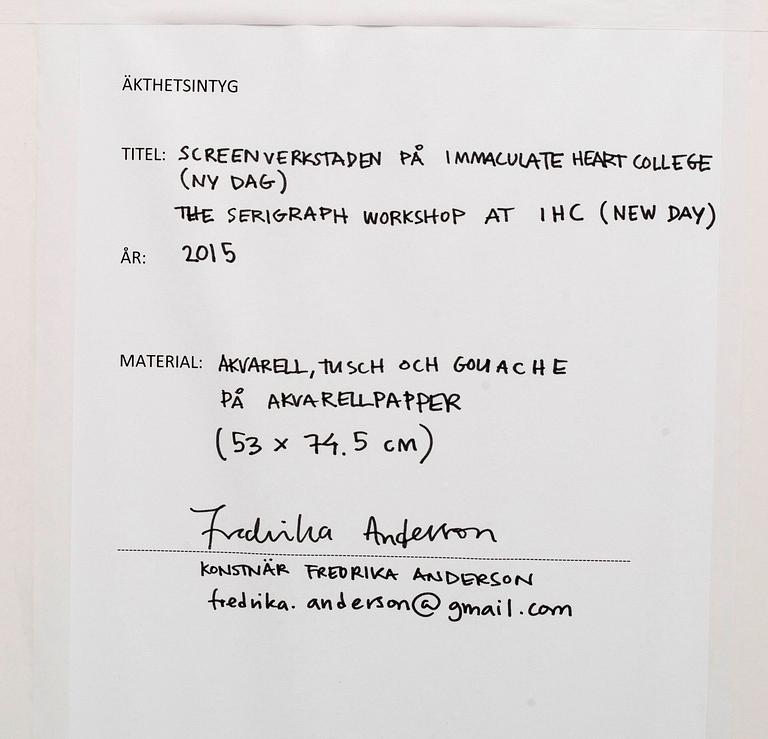 ÄKTHETSINTYG
TITEL: SCREENVERKSTADEN PÅ IMMACULATE HEART COLLEGE
(NY DAG)
THE SERIGRAPH WORKSHOP AT IHC (NEW DAY)
ÅR: 2015
MATERIAL: AKVARELL, TUSCH OCH GOUACHE
PÅ AKVARELLPAPPER
(53 x 74.5 cm)
Fredrika Anderson
KONSTNÄR FREDRIKA ANDERSON
fredrika.anderson@gmail.com